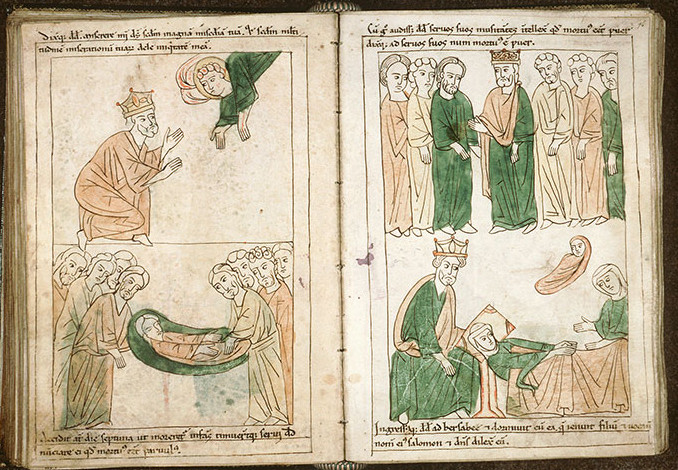 Dixitq; dd. miserere mi ds. scdm magnā misc̄diā tuā. & scdm multi
tudinē miserationū tuaꝝ dele iniq̇tatē meā.
Accidit aūt die septima ut moreretur infās timuerūtq; servi dd
nūciare ei qd mortuꝰ eēt parvulꝰ.
Cū ḡ audiss; dd. servos suos musitātes. ītellex̄ qd mortuꝰ eēt puer
dixitq; ad servos suos num mortuꝰ ē puer.
Ingressꝰq; dd. ad bersabeē & dormivit cū ea. q̄ genuit filiū & vocavit
nomē eiꝰ salomon & dn̄s dilexit eū.